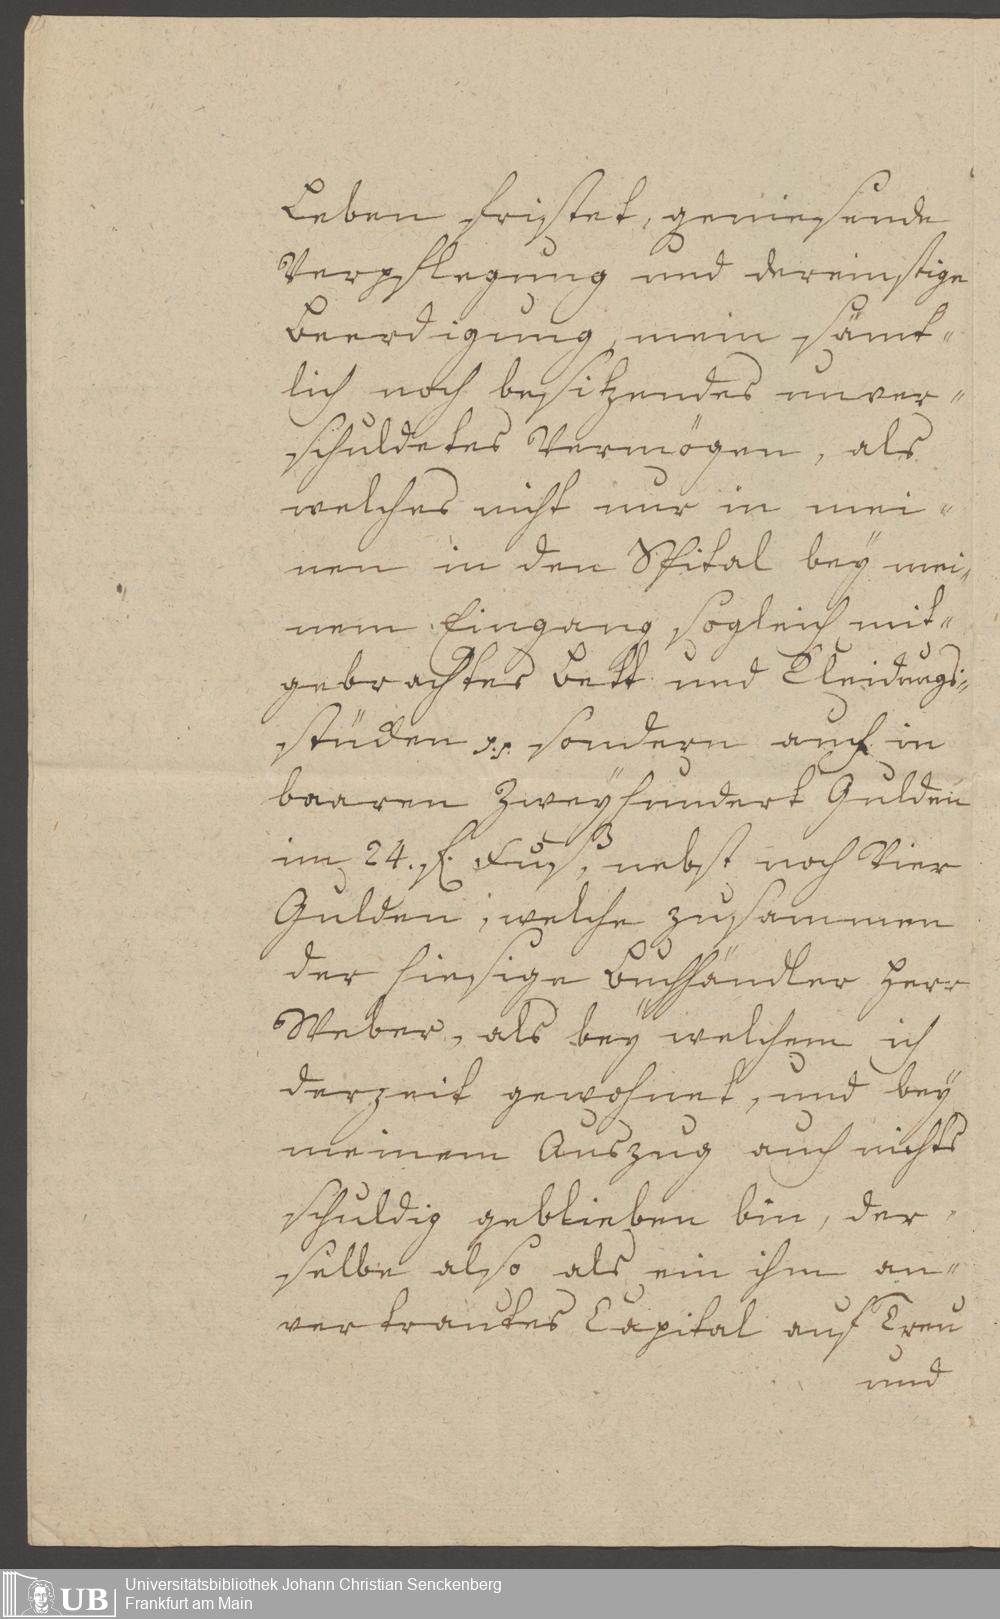 Leben fristet, geniesende
Verpflegung und dereinstige
Beerdigung, mein sämt„
lich noch besitzendes unver„
schuldetes Vermögen, als
welches nicht nur in mei„
nen in den Spital bey mei„
nem Eingang sogleich mit„
gebrachtes Bett und Kleidungs„
stücken p.p. sondern auch in
baaren Zweyhundert Gulden
im 24. f. Fuß, nebst noch Vier
Gulden, welche zusammen
der hiesige Buchhändler Herr
Weber, als bey welchem ich
derzeit gewohnet, und bey
meinem Auszug auch nichts
schuldig geblieben bin, der„
selbe also als ein ihm an„
vertrautes Capital auf Treu
und
UB
Universitätsbibliothek Johann Christian Senckenberg
Frankfurt am Main